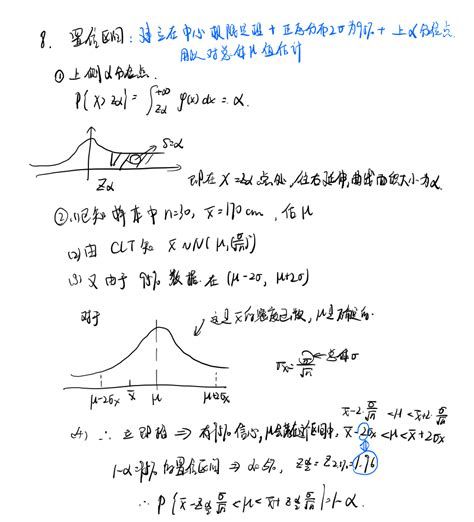 8. 置信区间：建立在中心极限定理 + 正态分布2σ为95% + 上α分位点.
用以对总体μ值估计
① 上侧α分位点.
P{X>Zα} = ∫_{Zα}^{+∞} φ(x)dx = α.
S=α
Zα
即在 X=Zα 点处, 往右延伸, 曲线面积大小为α.
② (1) 已知 样本中 n=30, x̄=170cm, 估μ
(2) 由 CLT 知 x̄~N(μ, (σ/√n)²)
(3) 又由于 95% 数据 在 (μ-2σ, μ+2σ)
对于
这是x̄的密度函数, μ是确定的.
σx̄ = σ/√n ← 总体σ
μ-2σx̄ x̄ μ μ+2σx̄
x̄-2·σ/√n <μ< x̄+2·σ/√n
(4) ∴ 立即推 ⇒ 有95%信心, μ会落在这区间中, x̄-2σx̄ <μ< x̄+2σx̄
1-α=95% 的置信区间 ⇒ α=5%, Zα/2 = Z2.5% = 1.96
∴ P{x̄-Zα/2 σ/√n <μ< x̄+Zα/2 σ/√n} = 1-α.